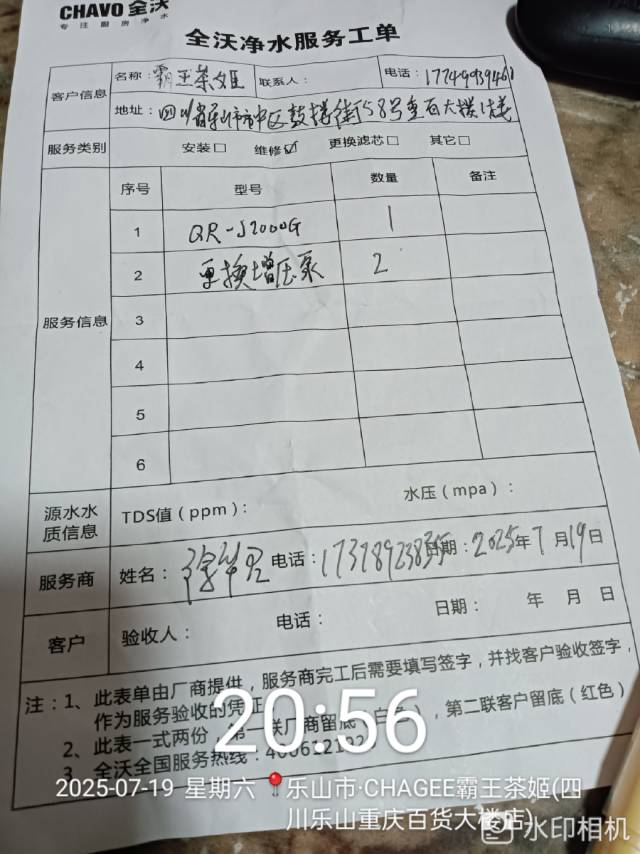 CHAVO 全沃
专注厨房净水
全沃净水服务工单
客户信息
名称：霸王茶姬 联系人： 电话：17749939461
地址：四川省乐山市市中区鼓楼街58号重百大楼1楼
服务类别 安装□ 维修☑ 更换滤芯□ 其它□
服务信息
序号 型号 数量 备注
1 QR-J2000G 1
2 更换增压泵 2
3
4
5
6
源水水质信息 TDS值（ppm）： 水压（mpa）：
服务商 姓名： 电话： 日期：2025年7月19日
客户 验收人： 电话： 日期： 年 月 日
注：1、此表单由厂商提供，服务商完工后需要填写签字，并找客户验收签字，
作为服务验收的凭证
2、此表一式两份，第一联厂商留底（白色），第二联客户留底（红色）
3、全沃全国服务热线：
20:56
2025-07-19 星期六 乐山市·CHAGEE霸王茶姬(四
川乐山重庆百货大楼店)
水印相机